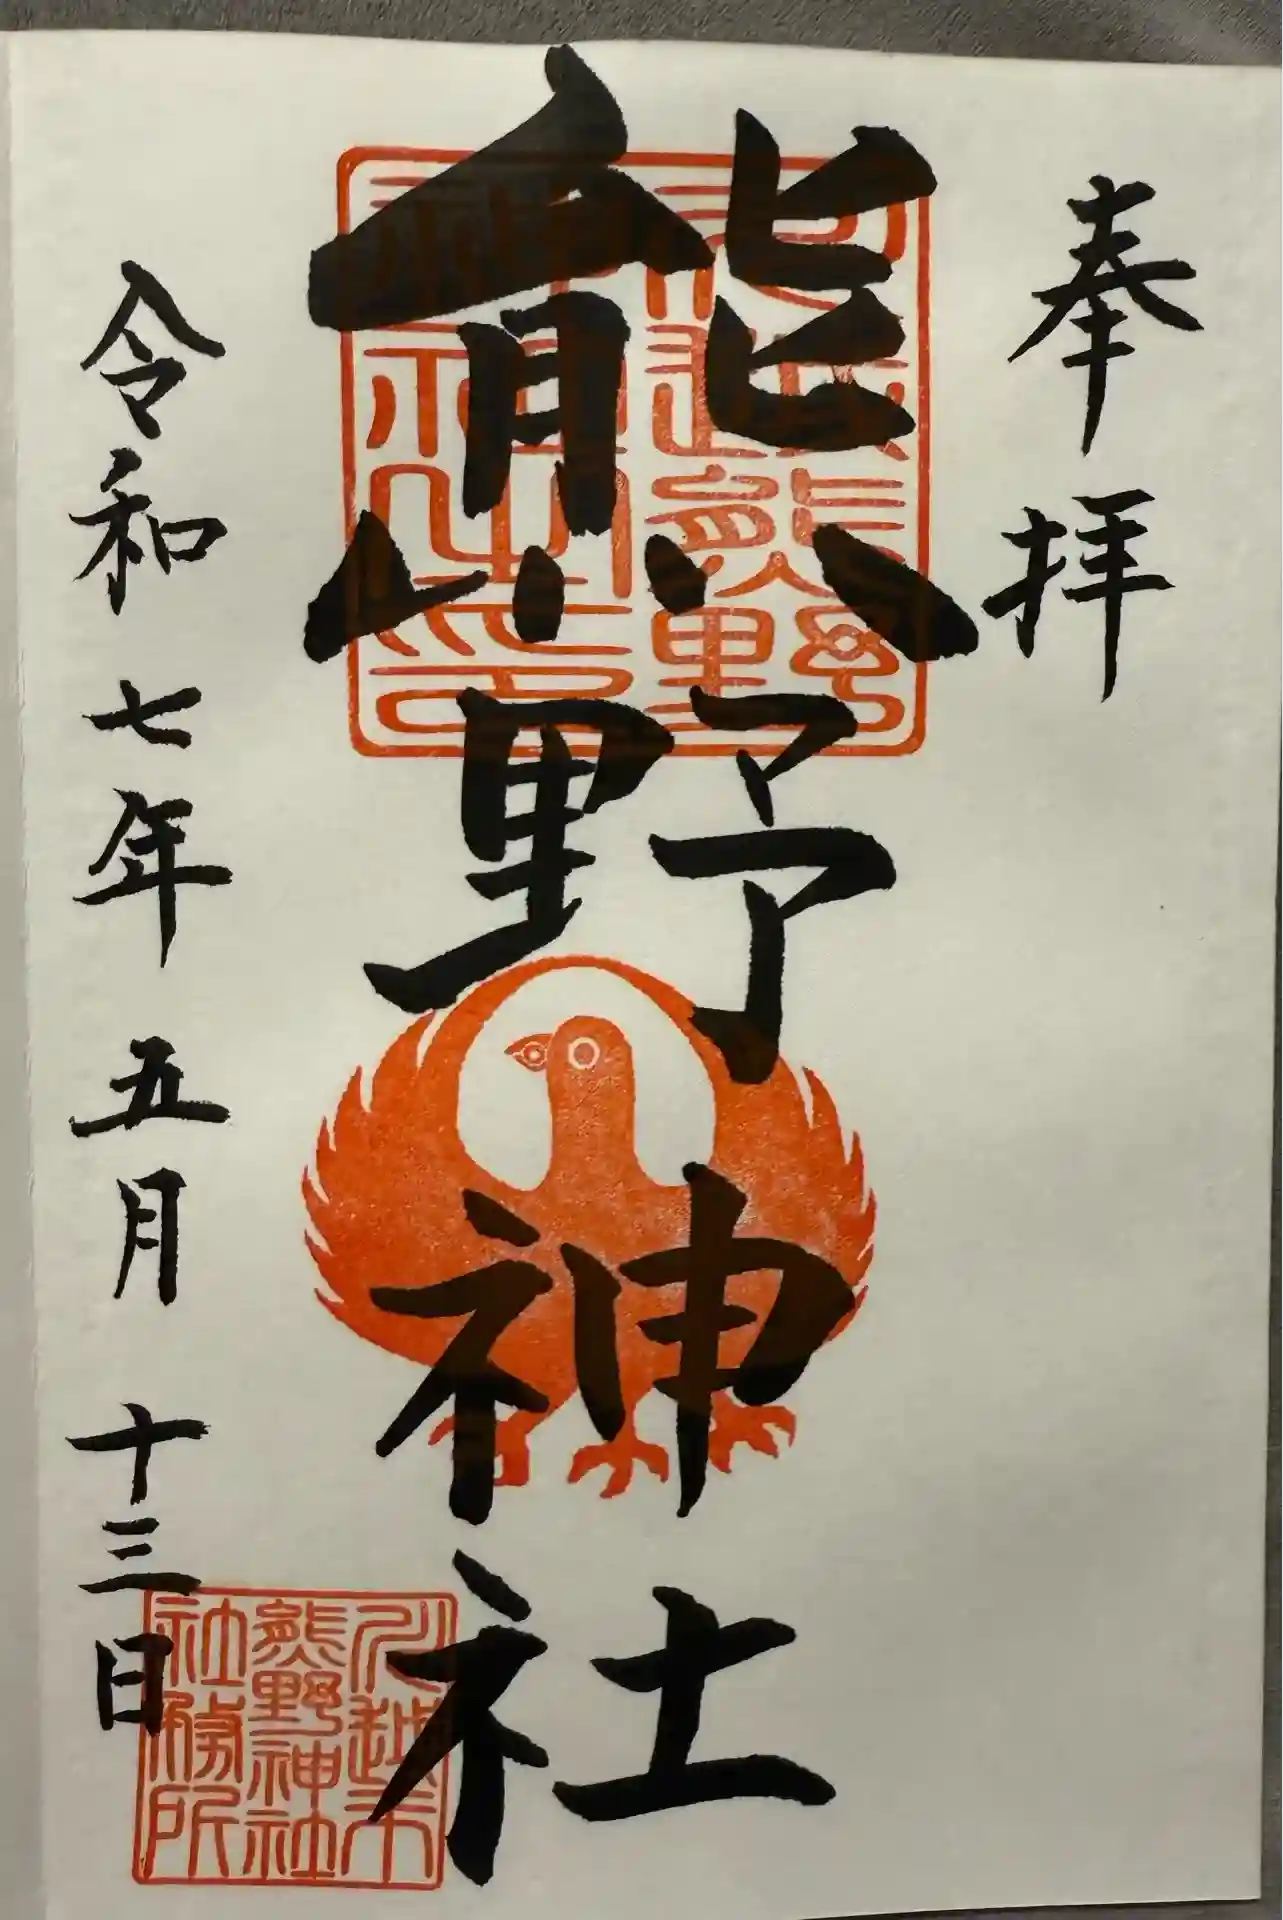 奉拝
熊野神社
令和七年五月十三日
川越市
熊野神社
社務所